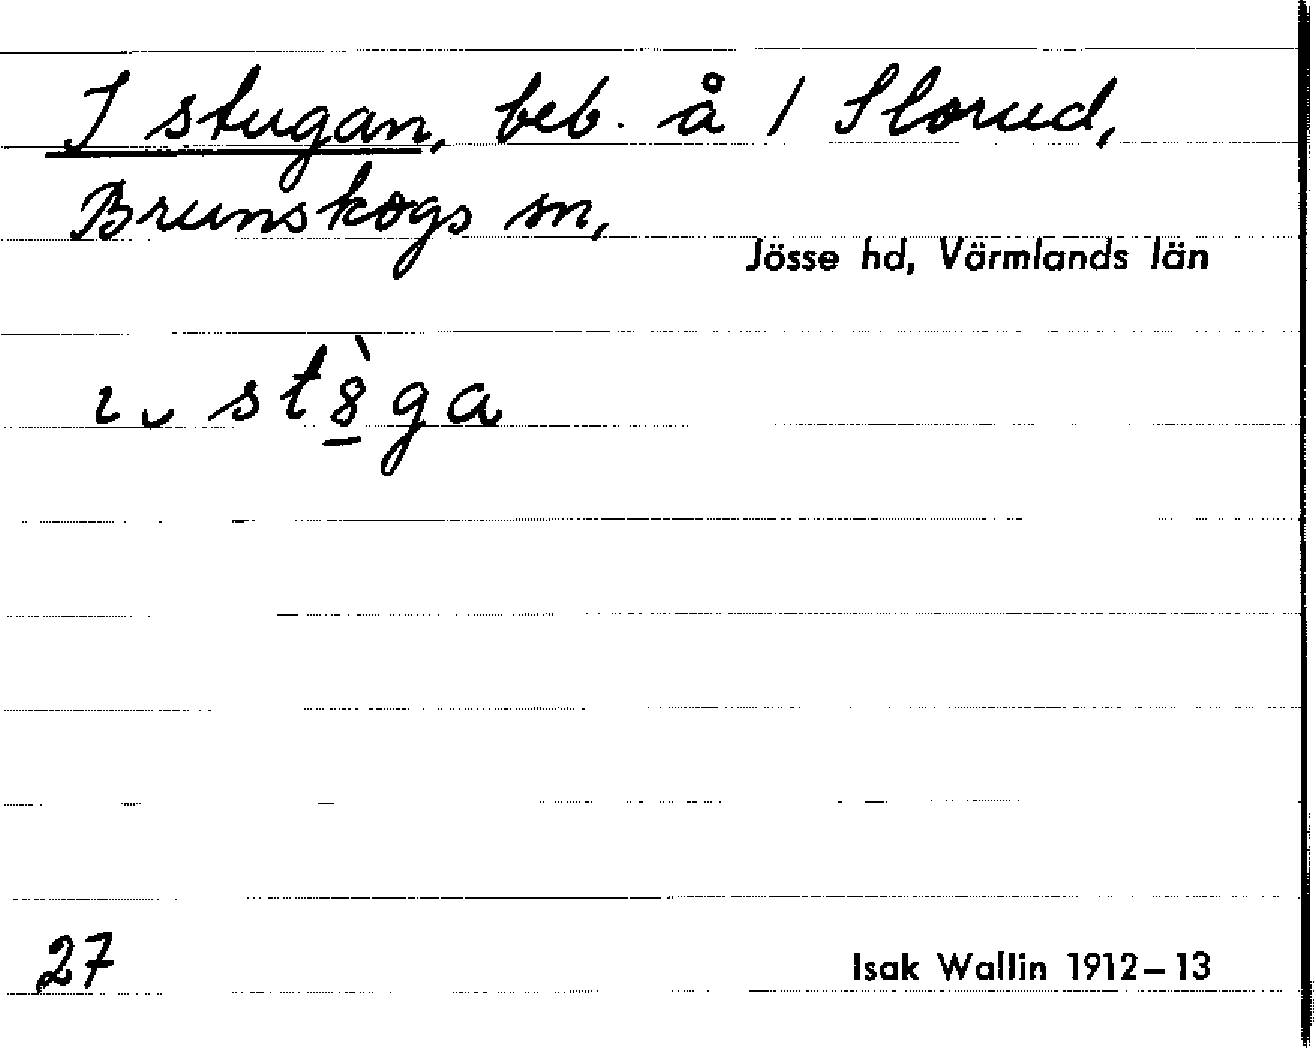 I stugan, beb. å / Slorud,
Brunskogs sn,
Jösse hd, Värmlands län
ɩ̮ st8̱̀ga
27
Isak Wallin 1912–13